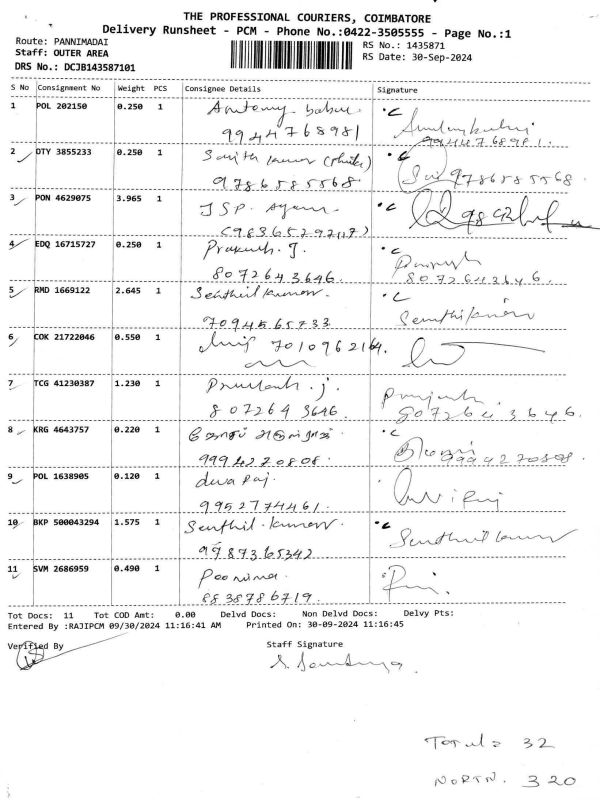 THE PROFESSIONAL COURIERS, COIMBATORE
Delivery Runsheet - PCM - Phone No.:0422-3505555 - Page No.:1
Route: PANNIMADAI
Staff: OUTER AREA
DRS No.: DCJB143587101
RS No.: 1435871
RS Date: 30-Sep-2024
S No Consignment No Weight PCS Consignee Details Signature
1 POL 202150 0.250 1 Antony babu
9944768981
9944768981.
2 DTY 3855233 0.250 1
9786585568
9786585568
3 PON 4629075 3.965 1 JSP.
4 EDQ 16715727 0.250 1 Prakash. J.
8072643646.
8072643646.
5 RMD 1669122 2.645 1 Senthil kumar.
7094565733
Senthilkumar
6 COK 21722046 0.550 1 7010962164.
7 TCG 41230387 1.230 1 j.
8072643646.
8072643646.
8 KRG 4643757 0.220 1
9994270808.
9994270808.
9 POL 1638905 0.120 1 deva raj.
9952774461.
10 BKP 500043294 1.575 1 Senthil. kumar.
9987365342
Senthil kumar
11 SVM 2686959 0.490 1 Poornima.
8838786719.
Tot Docs: 11 Tot COD Amt: 0.00 Delvd Docs: Non Delvd Docs: Delvy Pts:
Entered By :RAJIPCM 09/30/2024 11:16:41 AM Printed On: 30-09-2024 11:16:45
Verified By Staff Signature
Total= 32
NORTN. 320